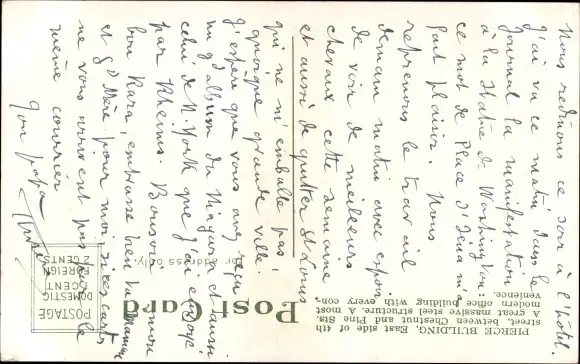 Nous rentrons ce soir à l'hôtel.
J'ai vu ce matin dans le
Journal la manifestation
à la Statue de Washington :
ce mot de Place d'Iéna m'a
fait plaisir. Nous
reprenons le travail
demain matin avec espoir
de voir de meilleurs
chevaux cette semaine
et aussi de quitter St Louis
qui ne m'emballe pas,
quoique grande ville.
J'espère que vous avez reçu
un gd album du Niagara et aussi
celui de N. York que j'ai envoyé
par Rheims. Bonsoir
bon Kara, embrasse bien ta Maman
et gd Mère pour moi si ces cartes
ne vous arrivent pas par le
même courrier
Ton papa
PIERCE BUILDING, East side of 4th
street, between Chestnut and Pine Sts.
A great massive steel structure. A most
modern office building with every con-
venience.
Post Card
For address only.
POSTAGE
DOMESTIC,
1 CENT
FOREIGN
2 CENTS